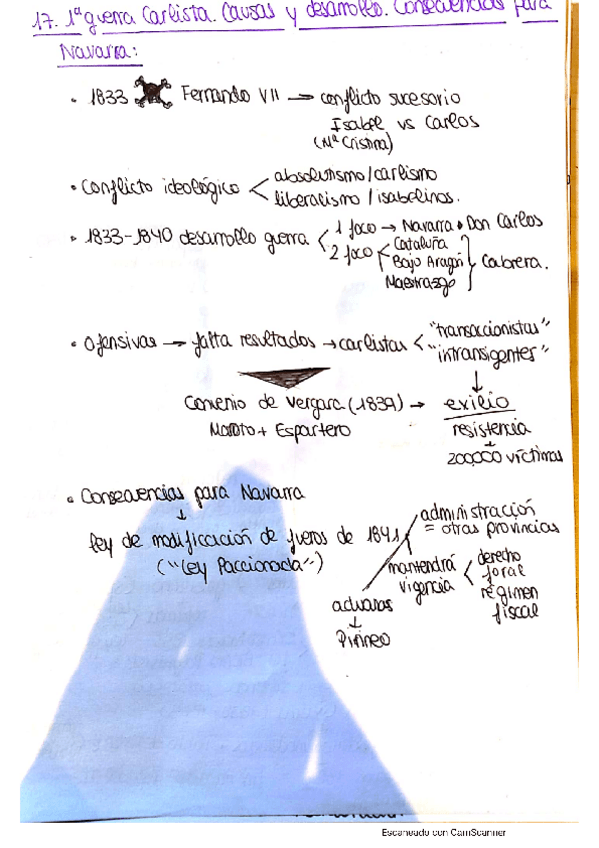 17. 1ª guerra Carlista. Causas y desarrollo. Consecuencias para
Navarra:
• 1833 Fernando VII → conflicto sucesorio
Isabel vs Carlos
(Mª Cristina)
• Conflicto ideológico < absolutismo/carlismo
liberalismo / isabelinos.
• 1833-1840 desarrollo guerra < 1 foco → Navarra • Don Carlos
2 foco < Cataluña
Bajo Aragón } Cabrera.
Maestrazgo
• Ofensivas → falta resultados → carlistas < "transaccionistas"
"intransigentes"
↓
Convenio de Vergara (1839) → exilio
Maroto + Espartero
resistencia
↓
200,000 víctimas
• Consecuencias para Navarra
↓
Ley de modificación de fueros de 1841
("Ley Paccionada")
administración
= otras provincias
mantendrá vigencia < derecho
foral
régimen
fiscal
aduanas
↓
Pirineo
Escaneado con CamScanner